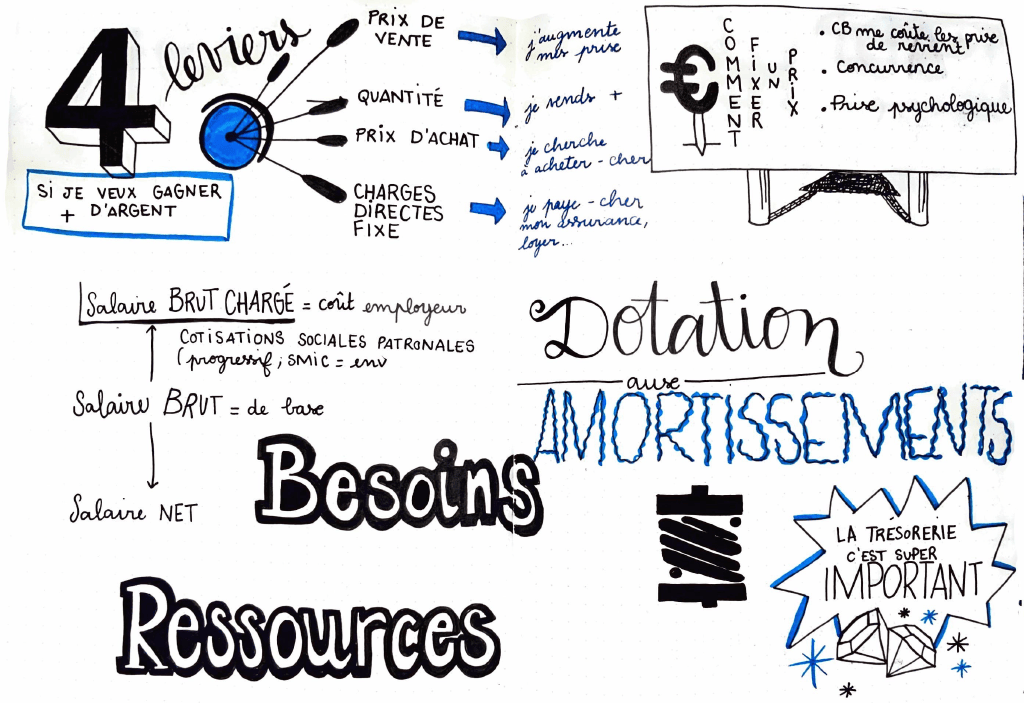 4 leviers
SI JE VEUX GAGNER
+ D'ARGENT
PRIX DE
VENTE
j'augmente
mes prise
QUANTITÉ
je vends +
PRIX D'ACHAT
je cherche
à acheter - cher
CHARGES
DIRECTES
FIXE
je paye - cher
mon assurance,
loyer...
€
COMMENT
FIXER
UN
PRIX
• CB me coûte les prise
de revient
• Concurrence
• Prise psychologique
Salaire BRUT CHARGÉ = coût employeur
COTISATIONS SOCIALES PATRONALES
(progressif, SMIC = env
Salaire BRUT = de base
Salaire NET
Besoins
Ressources
Dotation
ause
AMORTISSEMENTS
LA TRÉSORERIE
C'EST SUPER
IMPORTANT